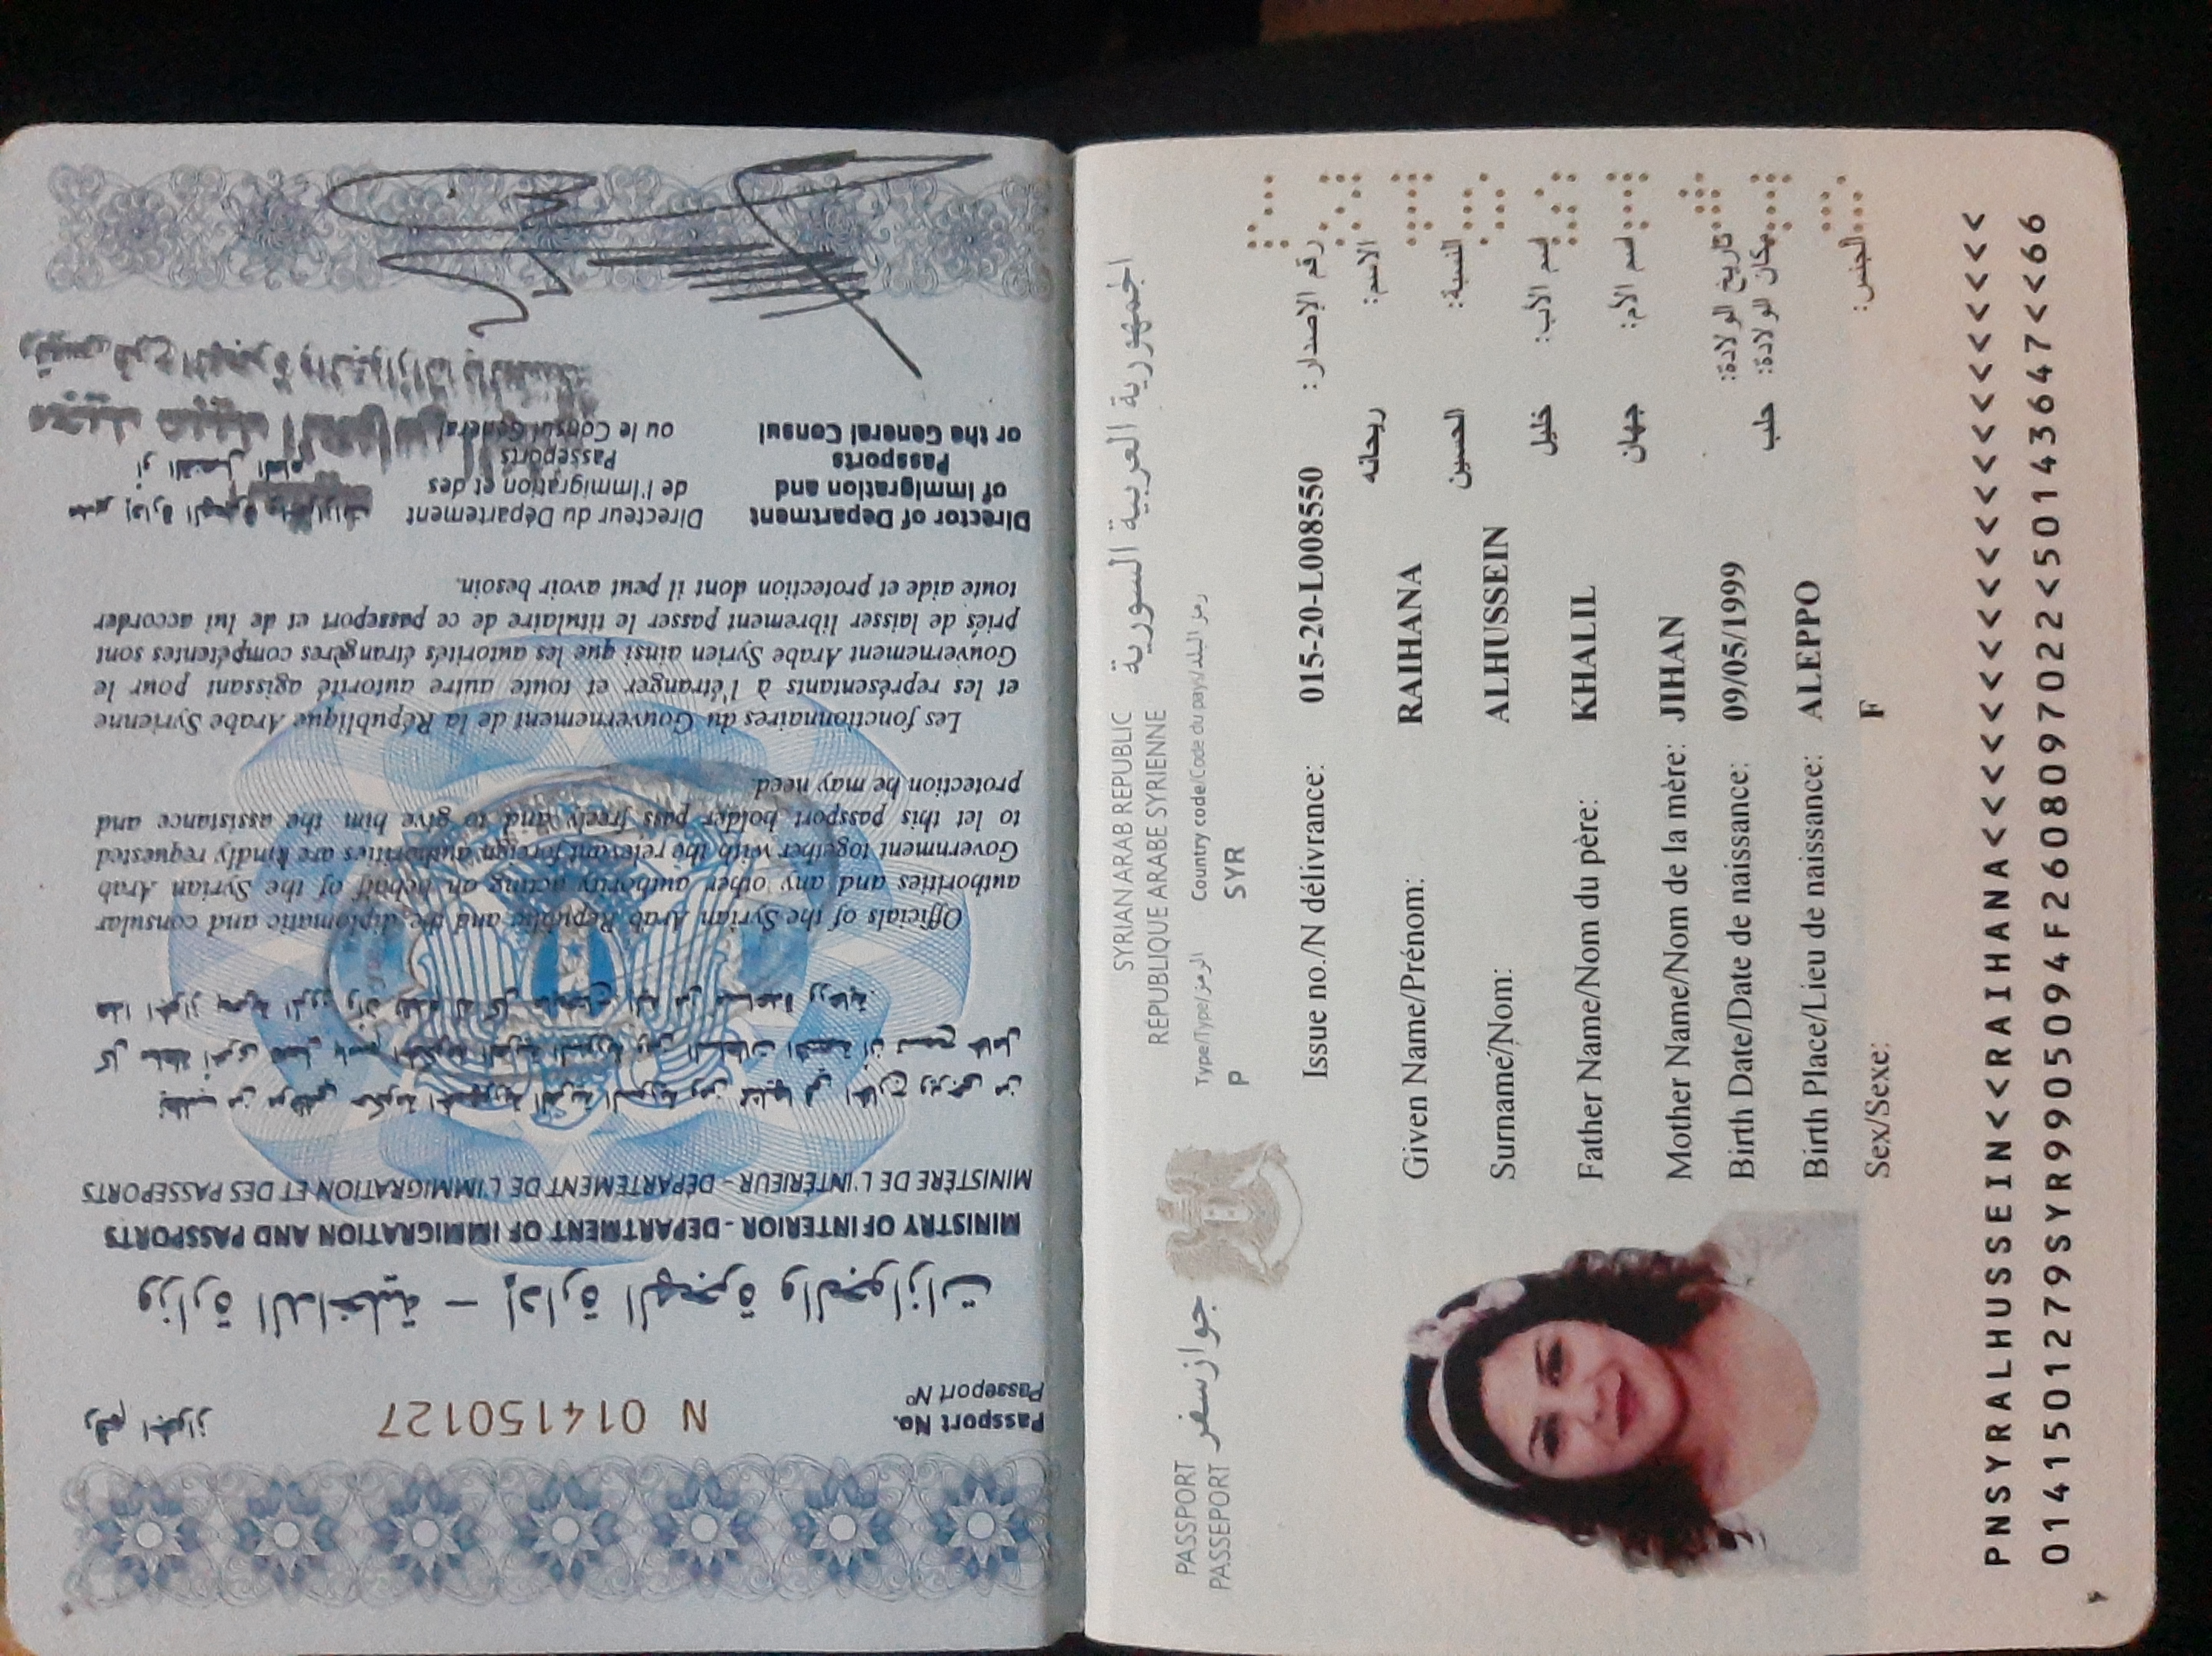 رقم الجواز
N 014150127
Passport No.
Passeport Nº
وزارة الداخلية – إدارة الهجرة والجوازات
MINISTRY OF INTERIOR - DEPARTMENT OF IMMIGRATION AND PASSPORTS
MINISTÈRE DE L'INTÉRIEUR - DÉPARTEMENT DE L'IMMIGRATION ET DES PASSEPORTS
Officials of the Syrian Arab Republic and the diplomatic and consular
authorities and any other authority acting on behalf of the Syrian Arab
Government together with the relevant foreign authorities are kindly requested
to let this passport holder pass freely and to give him the assistance and
protection he may need.
Les fonctionnaires du Gouvernement de la République Arabe Syrienne
et les représentants à l'étranger et toute autre autorité agissant pour le
Gouvernement Arabe Syrien ainsi que les autorités étrangères compétentes sont
priés de laisser librement passer le titulaire de ce passeport et de lui accorder
toute aide et protection dont il peut avoir besoin.
Director of Department
of Immigration and
Passports
or the General Consul
Directeur du Département
de l'Immigration et des
Passeports
ou le Consul Général
مدير إدارة الهجرة والجوازات
أو القنصل العام
SYRIAN ARAB REPUBLIC
RÉPUBLIQUE ARABE SYRIENNE
الجمهورية العربية السورية
PASSPORT
PASSEPORT
جواز سفر
Type/Type/الرمز
P
Country code/Code du pays/رمز البلد
SYR
Issue no./N délivrance: 015-20-L008550 رقم الإصدار:
ريحانه الاسم:
Given Name/Prénom: RAIHANA
الحسين النسبة:
Surname/Nom: ALHUSSEIN
خليل اسم الأب:
Father Name/Nom du père: KHALIL
جهان اسم الأم:
Mother Name/Nom de la mère: JIHAN
Birth Date/Date de naissance: 09/05/1999 تاريخ الولادة:
حلب مكان الولادة:
Birth Place/Lieu de naissance: ALEPPO
Sex/Sexe: F الجنس:
PNSYRALHUSSEIN<<RAIHANA<<<<<<<<<<<<<<<<<<<<<
0141501279SYR9905094F2608097022<50143647<<66
٢